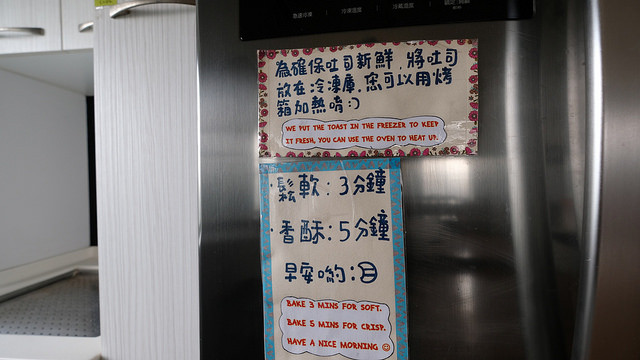 為確保吐司新鮮,將吐司
放在冷凍庫,您可以用烤
箱加熱唷:)
WE PUT THE TOAST IN THE FREEZER TO KEEP
IT FRESH, YOU CAN USE THE OVEN TO HEAT UP.
·鬆軟:3分鐘
·香酥:5分鐘
早安喲:
BAKE 3 MINS FOR SOFT.
BAKE 5 MINS FOR CRISP.
HAVE A NICE MORNING ☺